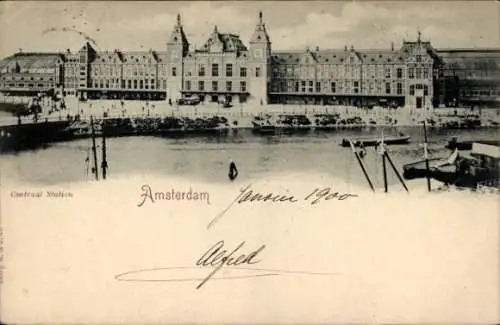 Centraal Station
Amsterdam
Januari 1900
Alfred